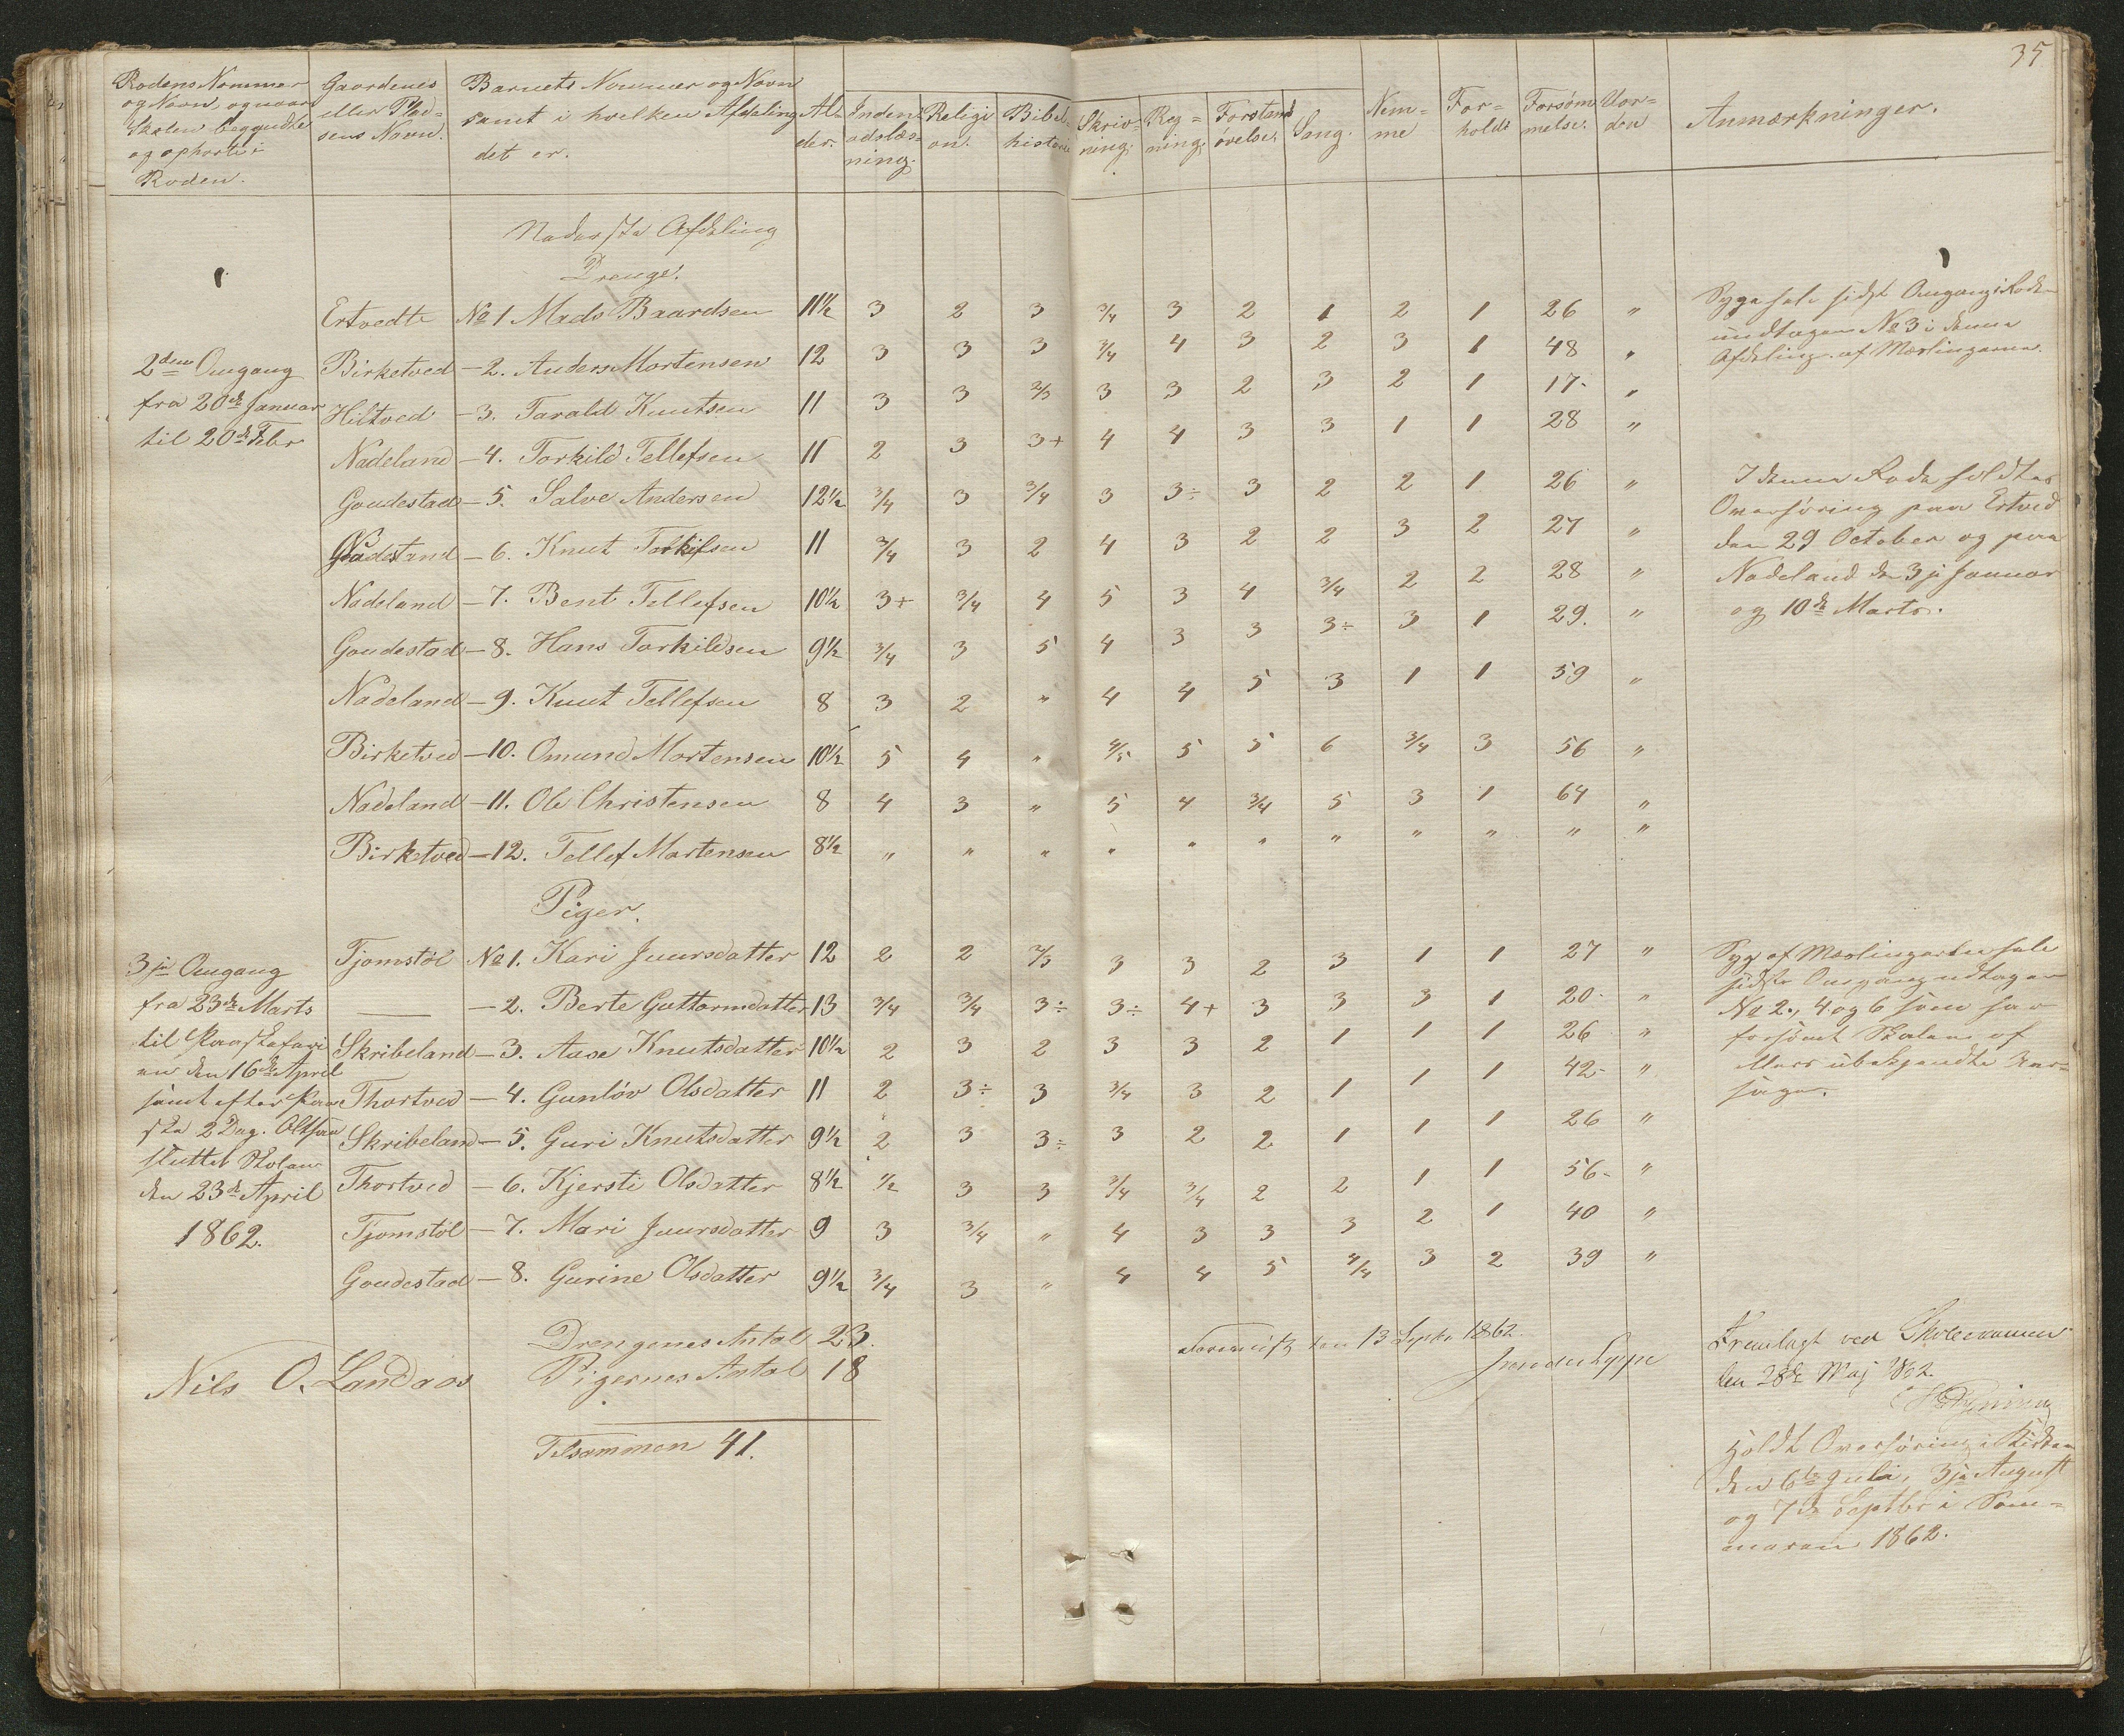 35
Rodens Nommer og Navn, og naar Skolen begyndte og ophørte i Roden.
Gaardenes eller Pladsens Navn.
Barnets Nommer og Navn samt i hvilken Afdeling det er.
Alder.
Inden- adslæsning.
Religion.
Bibelhistorie
Skrivning.
Regning.
Forstandsøvelse.
Sang.
Nemme
Forhold
Forsømmelse.
Vorden
Anmærkninger.
Nederste Afdeling
Drenge.
Ertvedte No 1 Mads Baardsen 11½ 3 2 3 3/4 3 2 1 2 1 26 "
Birketved - 2. Anders Mortensen 12 3 3 3 3/4 4 3 2 3 1 48 "
Hiltved - 3. Tarald Knutsen 11 3 3 2/3 3 3 2 3 2 1 17- "
Nadeland - 4. Torkild Tellefsen 11 2 3 3+ 4 4 3 3 1 1 28 "
Goudestad - 5. Salve Andersen 12½ 3/4 3 3/4 3 3÷ 3 2 2 1 26 "
- 6. Knut 11 3/4 3 2 4 3 2 2 3 2 27 "
Nadeland - 7. Bent Tellefsen 10½ 3+ 3/4 4 5 3 4 3/4 2 2 28 "
Goudestad - 8. Hans Torkildsen 9½ 3/4 3 5 4 3 3 3÷ 3 1 29. "
Nadeland - 9. Knut Tellefsen 8 3 2 " 4 4 5 3 1 1 59 "
Birketved - 10. Omund Mortensen 10½ 5 4 " 4/5 5 5 6 3/4 3 56 "
Nadeland - 11. Ole Christensen 8 4 3 " 5 4 3/4 5 3 1 64 "
Birketved - 12. Tellef Mortensen 8½ " " " " " " " " " " "
2den Omgang
fra 20de Januar
til 20de Febr
Syge hele sidst Omgang i Roden
undtagen No 3 i denne
Afdeling. af Mæslingerne.
I denne Rode holdtes
Overhøring paa Ertved
den 29 October og paa
Nadeland den 3je Januar
og 10de Marts.
Piger.
Tjomstøl No 1. Kari Juursdatter 12 2 2 2/3 3 3 2 3 1 1 27 "
— - 2. Berte Guttormdatter 13 3/4 3/4 3÷ 3÷ 4+ 3 3 3 1 20- "
Skribeland - 3. Aase Knutsdatter 10½ 2 3 2 3 3 2 1 1 1 26 "
Thortved - 4. Gunløv Olsdatter 11 2 3÷ 3 3/4 3 2 1 1 1 42- "
Skribeland - 5. Guri Knutsdatter 9½ 2 3 3÷ 3 2 2 1 1 1 26 "
Thortved - 6. Kjersti Olsdatter 8½ ½ 3 3 3/4 3/4 2 2 1 1 56- "
Tjomstøl - 7. Mari Juursdatter 9 3 3/4 " 4 3 3 3 2 1 40 "
Goudestad - 8. Gurine Olsdatter 9½ 3/4 3 " 4 4 5 3 2 39 "
3je Omgang
fra 23de Marts
til Paaskefari
en den 16de April
samt efter Paa
ske 2 Dag. Altsaa
sluttet Skolen
den 23de April
1862.
Syg af Mæslingerne hele
sidste Omgang undtagen
No 2., 4. og 6 som har
forsømt Skolen af
ubekjendte Aar-
sager.
Drengenes Antal 23.
Pigernes Antal 18
Tilsammen 41.
Nils O. Landaas
den 13 Septr 1862.
Fremlagt ved Skoleexamen
den 28de Maj 1862.
Holdt Overhøring i Kirken
den 6te Juli, 3je August
og 7de Septbr i Som-
meren 1862.